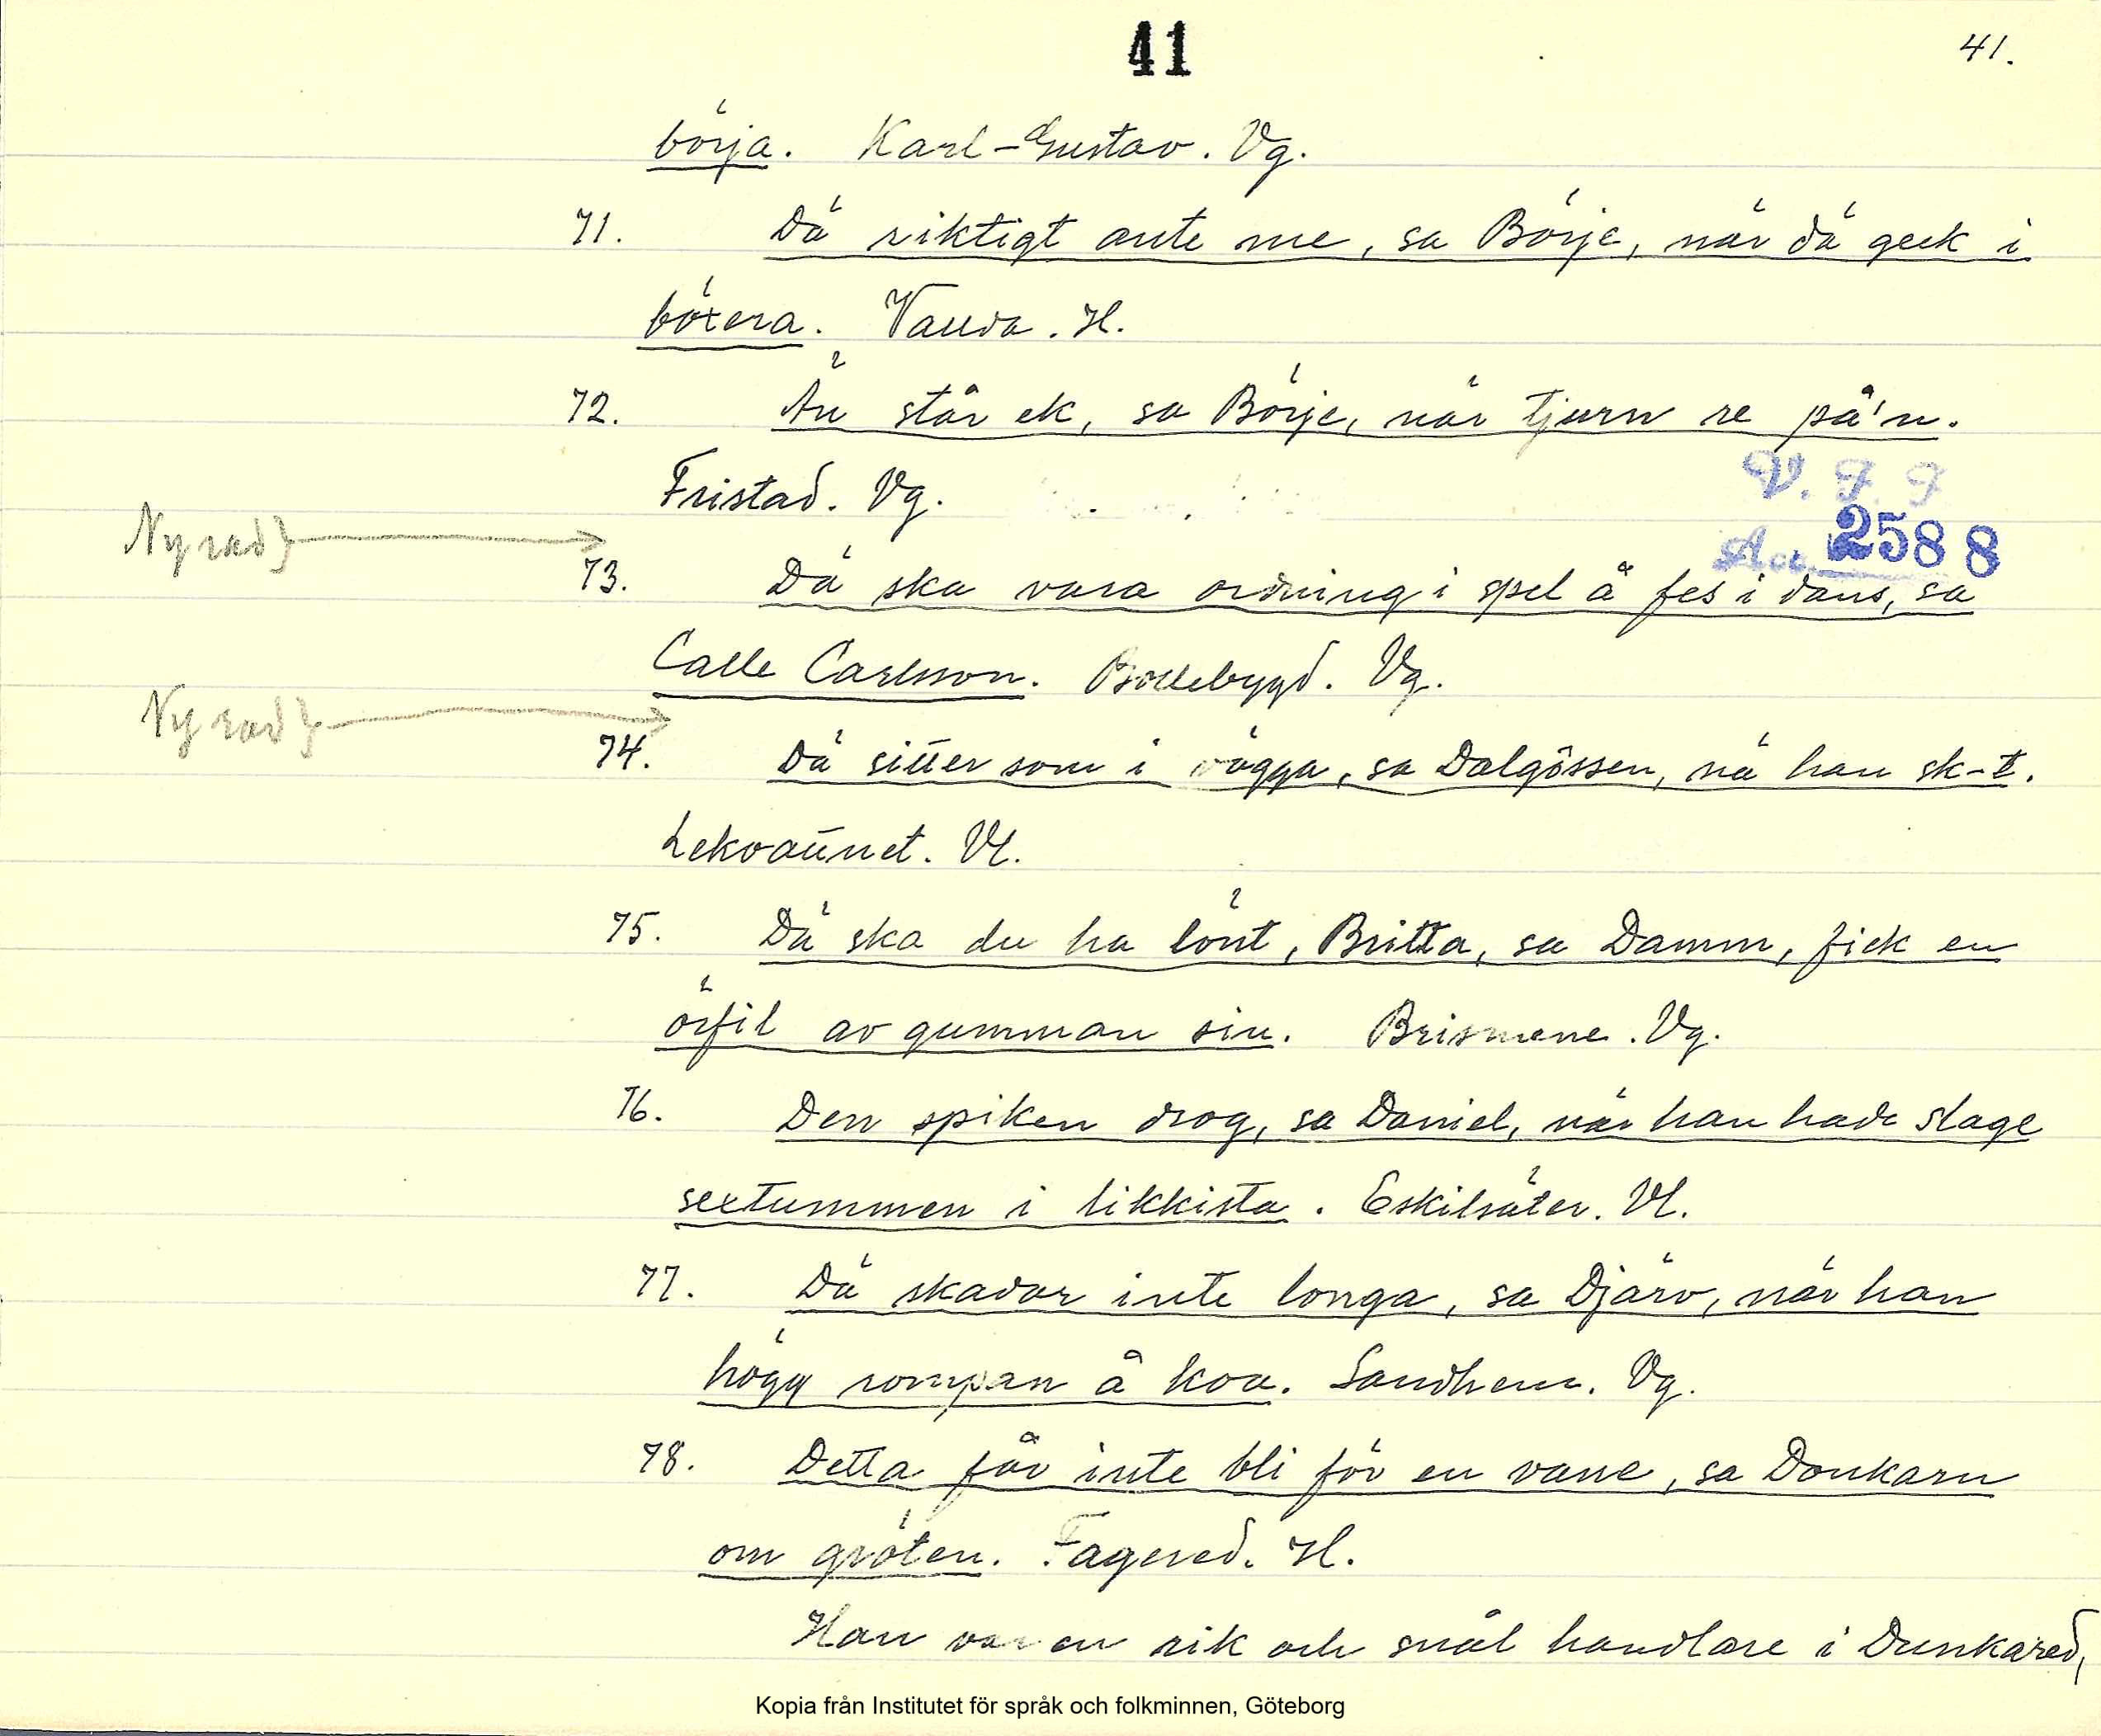 41
41.
börja. Karl-Gustav. Vg.
71. Dä riktigt ante me, sa Börje, när dä geck i
böxera. Vauda. H.
72. Än står ek, sa Börje, när tjurn re på'n.
Fristad. Vg.
V. F. F
Ny rad}
Acc. 2588
73. Dä ska vara ordning i spel å fes i dans, sa
Calle Carlsson. Bollebygd. Vg.
Ny rad}
74. Dä sitter som i vägga, sa Dalgössen, nä han sk-t.
Lekvattnet. Vl.
75. Dä ska du ha lönt, Britta, sa Damm, fick en
örfil av gumman sin. Brismene. Vg.
76. Den spiken drog, sa Daniel, när han hade slage
sextummen i likkista. Eskilsäter. Vl.
77. Dä skadar inte longa, sa Djärv, när han
högg rompan å koa. Sandhem. Vg.
78. Detta får inte bli för en vane, sa Donkarn
om gröten. Fagered. H.
Han var en rik och snål handlare i Dunkared,
Kopia från Institutet för språk och folkminnen, Göteborg